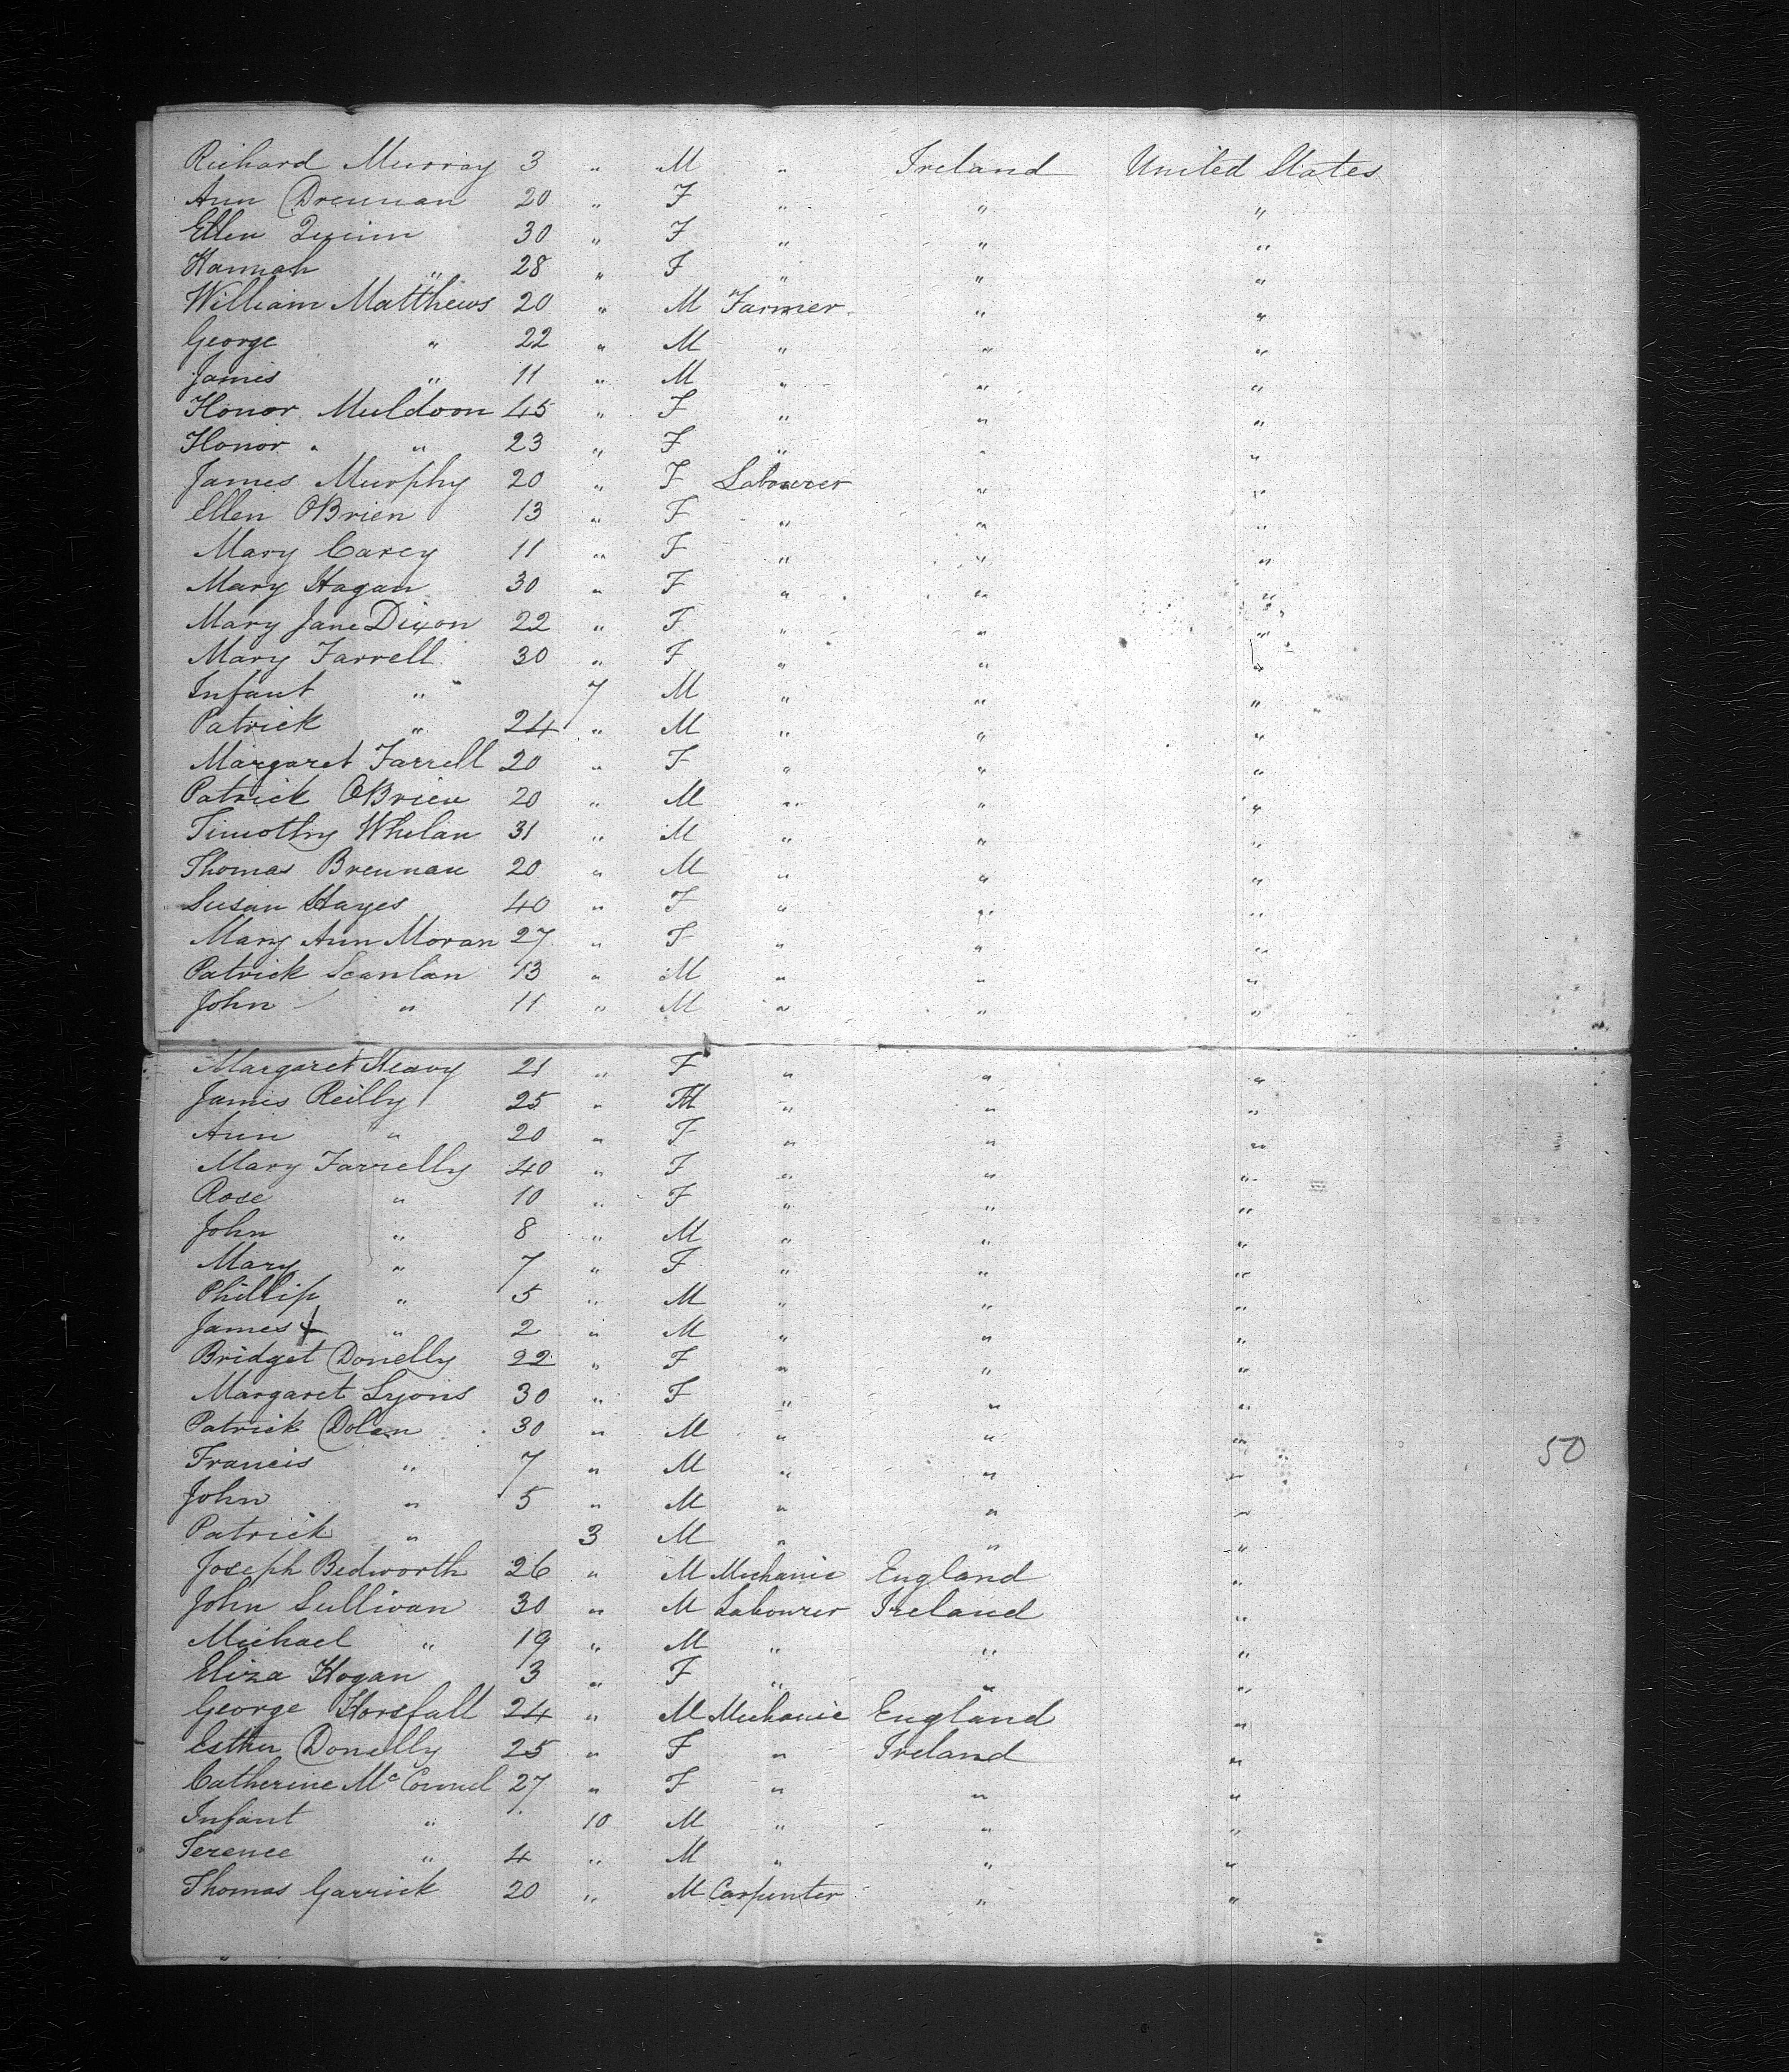 Richard Murray 3 " M " Ireland United States
Ann Drennan 20 " F " " "
Ellen Quinn 30 " F " " "
Hannah " 28 " F " " "
William Matthews 20 " M Farmer " "
George " 22 " M " " "
James " 11 " M " " "
Honor Muldoon 45 " F " " "
Honor " 23 " F " " "
James Murphy 20 " F Labourer " "
Ellen OBrien 13 " F " " "
Mary Carey 11 " F " " "
Mary Hagan 30 " F " " "
Mary Jane Dixon 22 " F " " "
Mary Farrell 30 " F " " "
Infant " 7 M " " "
Patrick " 24 " M " " "
Margaret Farrell 20 " F " " "
Patrick OBrien 20 " M " " "
Timothy Whelan 31 " M " " "
Thomas Brennan 20 " M " " "
Susan Hayes 40 " F " " "
Mary Ann Moran 27 " F " " "
Patrick Scanlan 13 " M " " "
John " 11 " M " " "
Margaret Meavy 21 " F " " "
James Reilly 25 " M " " "
Ann " 20 " F " " "
Mary Farrelly 40 " F " " "
Rose " 10 " F " " "
John " 8 " M " " "
Mary " 7 " F " " "
Phillip " 5 " M " " "
James " 2 " M " " "
Bridget Donelly 22 " F " " "
Margaret Lyons 30 " F " " "
Patrick Dolan 30 " M " " "
Francis " 7 " M " " " 50
John " 5 " M " " "
Patrick " 3 M " " "
Joseph Bedworth 26 " M Mechanic England "
John Sullivan 30 " M Labourer Ireland "
Michael " 19 " M " " "
Eliza Hogan 3 " F " " "
George Horsfall 24 " M Mechanic England "
Esther Donelly 25 " F " Ireland "
Catherine McConnel 27 " F " " "
Infant " 10 M " " "
Terence " 4 " M " " "
Thomas Garrick 20 " M Carpenter " "